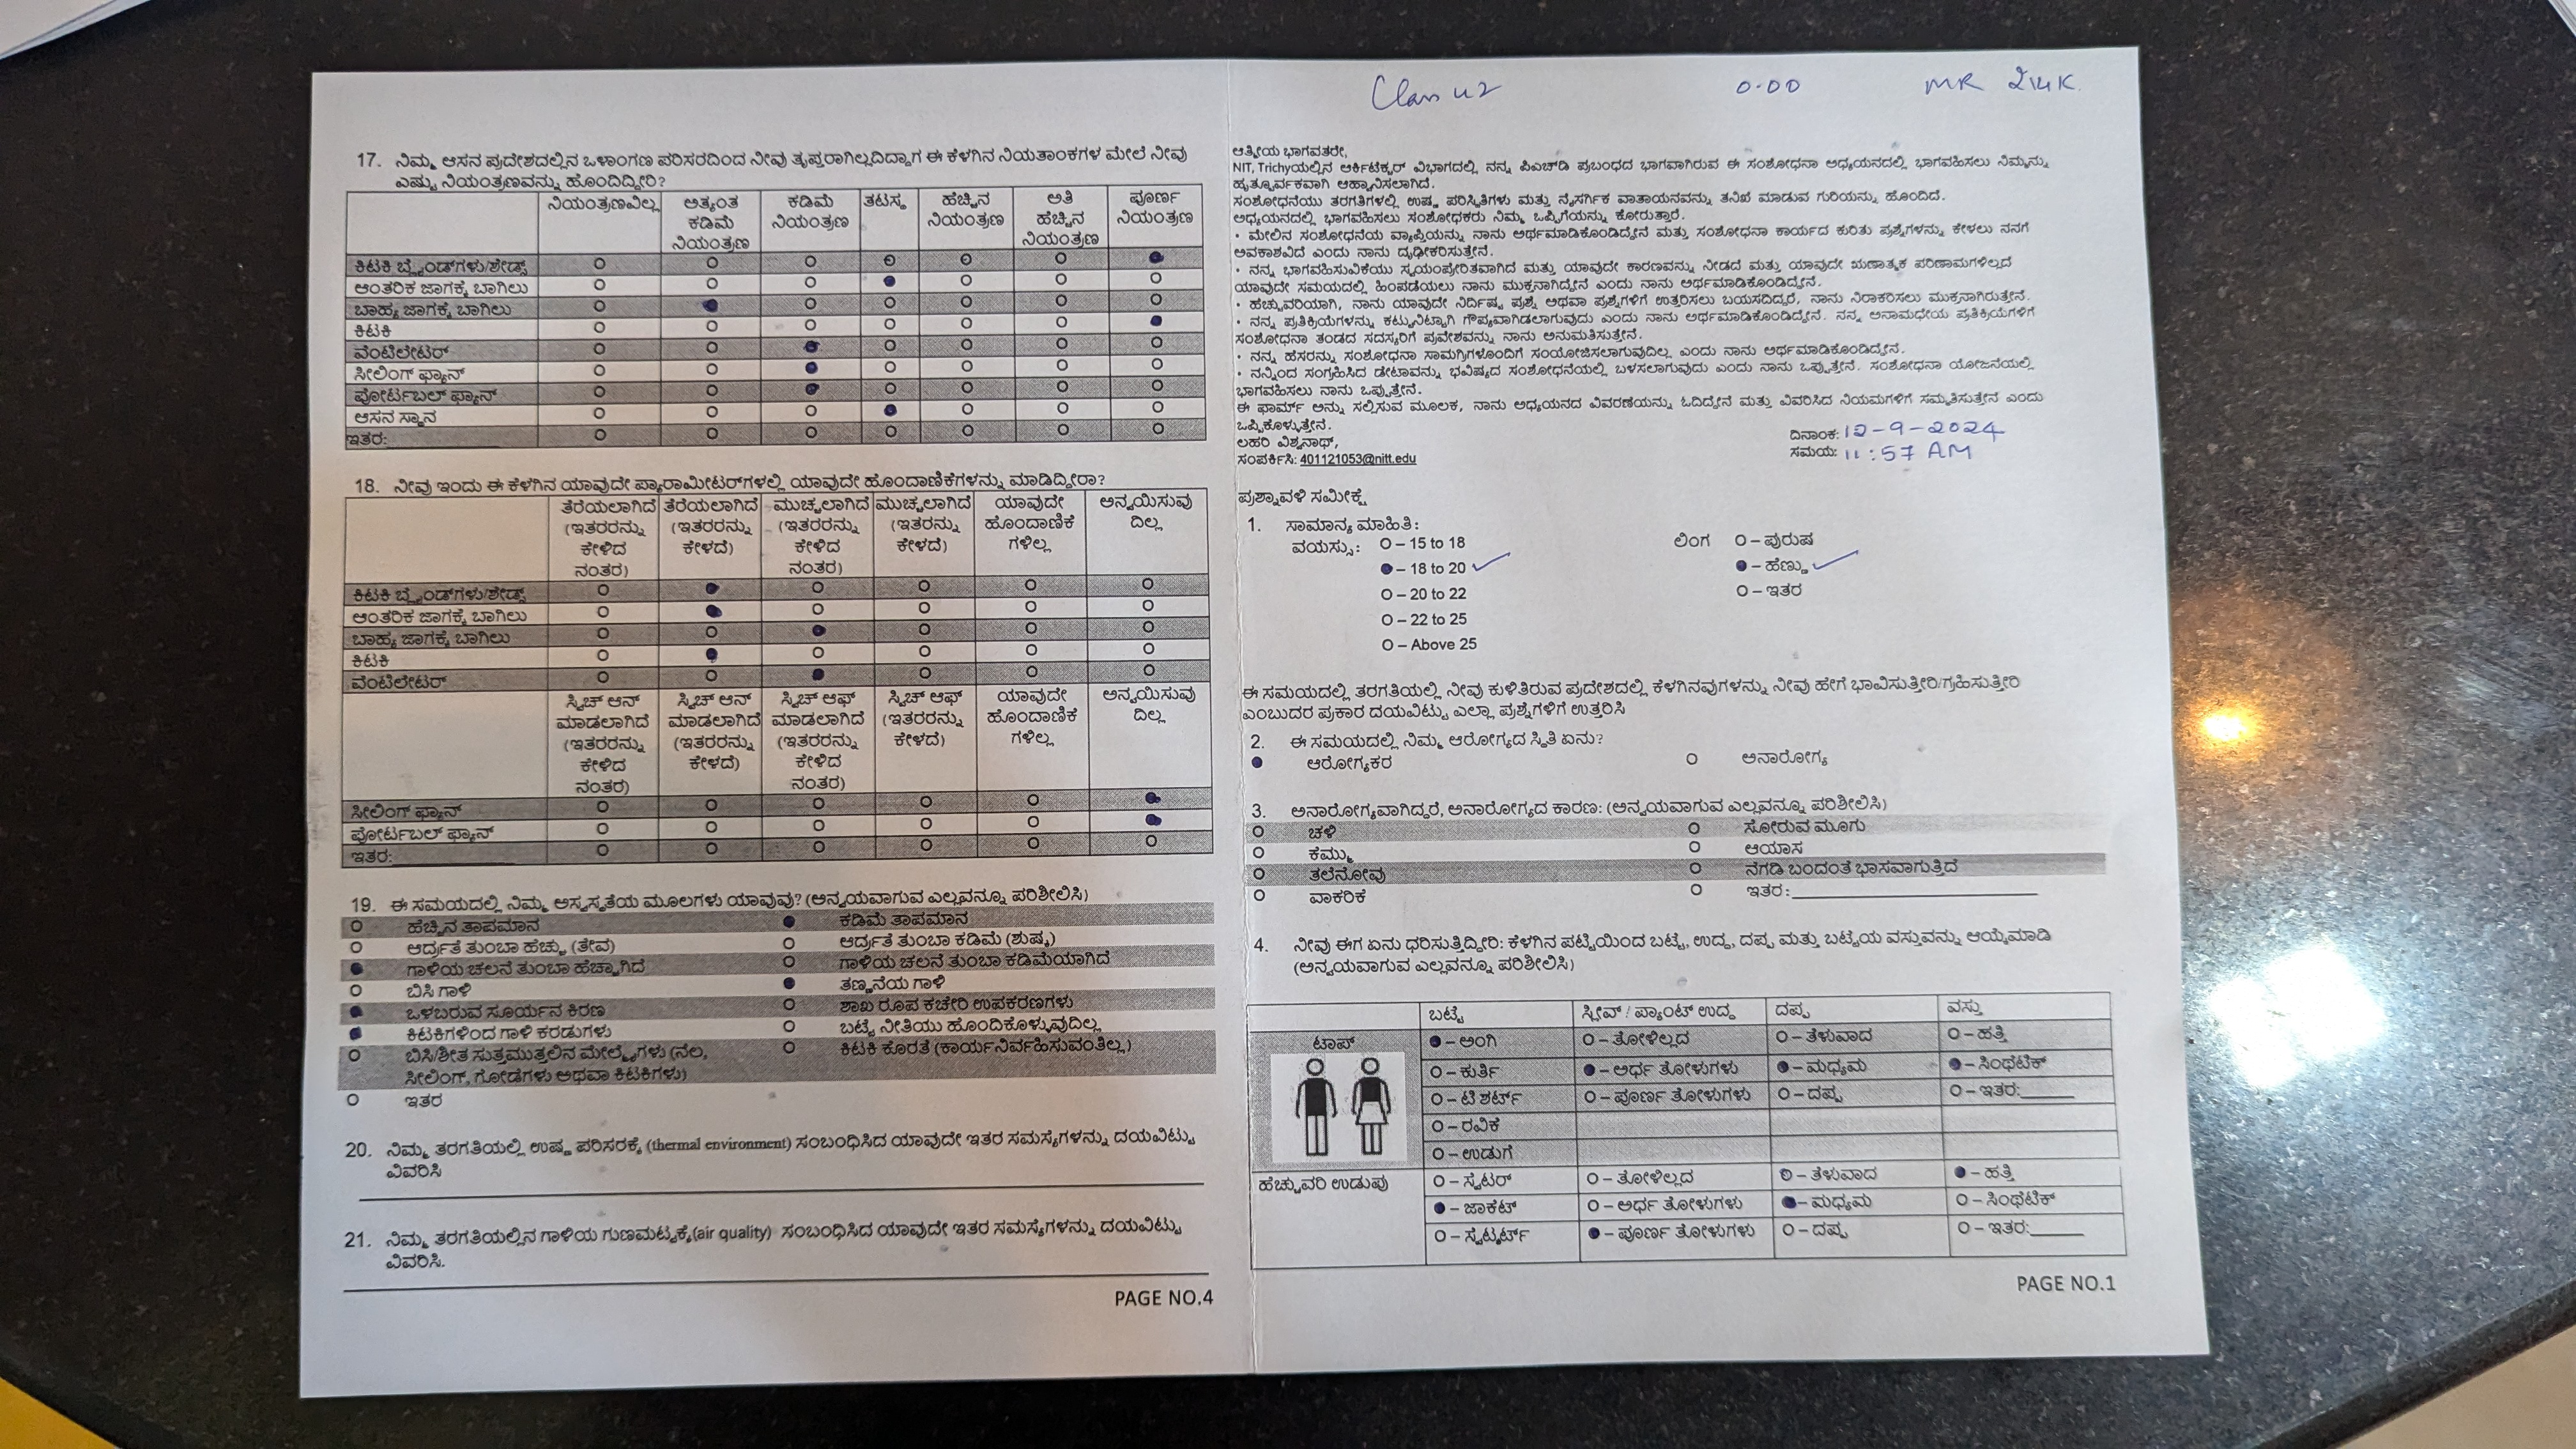 17. ನಿಮ್ಮ ಆಸನ ಪ್ರದೇಶದಲ್ಲಿನ ಒಳಾಂಗಣ ಪರಿಸರದಿಂದ ನೀವು ತೃಪ್ತರಾಗಿಲ್ಲದಿದ್ದಾಗ ಈ ಕೆಳಗಿನ ನಿಯತಾಂಕಗಳ ಮೇಲೆ ನೀವು
ಎಷ್ಟು ನಿಯಂತ್ರಣವನ್ನು ಹೊಂದಿದ್ದೀರಿ?
ನಿಯಂತ್ರಣವಿಲ್ಲ ಅತ್ಯಂತ ಕಡಿಮೆ ನಿಯಂತ್ರಣ ಕಡಿಮೆ ನಿಯಂತ್ರಣ ತಟಸ್ಥ ಹೆಚ್ಚಿನ ನಿಯಂತ್ರಣ ಅತಿ ಹೆಚ್ಚಿನ ನಿಯಂತ್ರಣ ಪೂರ್ಣ ನಿಯಂತ್ರಣ
ಕಿಟಕಿ ಬ್ಲೈಂಡ್‌ಗಳು/ಶೇಡ್ಸ್
ಆಂತರಿಕ ಜಾಗಕ್ಕೆ ಬಾಗಿಲು
ಬಾಹ್ಯ ಜಾಗಕ್ಕೆ ಬಾಗಿಲು
ಕಿಟಕಿ
ವೆಂಟಿಲೇಟರ್
ಸೀಲಿಂಗ್ ಫ್ಯಾನ್
ಪೋರ್ಟಬಲ್ ಫ್ಯಾನ್
ಆಸನ ಸ್ಥಾನ
ಇತರ:
18. ನೀವು ಇಂದು ಈ ಕೆಳಗಿನ ಯಾವುದೇ ಪ್ಯಾರಾಮೀಟರ್‌ಗಳಲ್ಲಿ ಯಾವುದೇ ಹೊಂದಾಣಿಕೆಗಳನ್ನು ಮಾಡಿದ್ದೀರಾ?
ತೆರೆಯಲಾಗಿದೆ (ಇತರರನ್ನು ಕೇಳಿದ ನಂತರ) ತೆರೆಯಲಾಗಿದೆ (ಇತರರನ್ನು ಕೇಳದೆ) ಮುಚ್ಚಲಾಗಿದೆ (ಇತರರನ್ನು ಕೇಳಿದ ನಂತರ) ಮುಚ್ಚಲಾಗಿದೆ (ಇತರನ್ನು ಕೇಳದೆ) ಯಾವುದೇ ಹೊಂದಾಣಿಕೆ ಗಳಿಲ್ಲ ಅನ್ವಯಿಸುವು ದಿಲ್ಲ
ಕಿಟಕಿ ಬ್ಲೈಂಡ್‌ಗಳು/ಶೇಡ್ಸ್
ಆಂತರಿಕ ಜಾಗಕ್ಕೆ ಬಾಗಿಲು
ಬಾಹ್ಯ ಜಾಗಕ್ಕೆ ಬಾಗಿಲು
ಕಿಟಕಿ
ವೆಂಟಿಲೇಟರ್
ಸ್ವಿಚ್ ಆನ್ ಮಾಡಲಾಗಿದೆ (ಇತರರನ್ನು ಕೇಳಿದ ನಂತರ) ಸ್ವಿಚ್ ಆನ್ ಮಾಡಲಾಗಿದೆ (ಇತರರನ್ನು ಕೇಳದೆ) ಸ್ವಿಚ್ ಆಫ್ ಮಾಡಲಾಗಿದೆ (ಇತರರನ್ನು ಕೇಳಿದ ನಂತರ) ಸ್ವಿಚ್ ಆಫ್ (ಇತರರನ್ನು ಕೇಳದೆ) ಯಾವುದೇ ಹೊಂದಾಣಿಕೆ ಗಳಿಲ್ಲ ಅನ್ವಯಿಸುವು ದಿಲ್ಲ
ಸೀಲಿಂಗ್ ಫ್ಯಾನ್
ಪೋರ್ಟಬಲ್ ಫ್ಯಾನ್
ಇತರ:
19. ಈ ಸಮಯದಲ್ಲಿ ನಿಮ್ಮ ಅಸ್ವಸ್ಥತೆಯ ಮೂಲಗಳು ಯಾವುವು? (ಅನ್ವಯವಾಗುವ ಎಲ್ಲವನ್ನೂ ಪರಿಶೀಲಿಸಿ)
ಹೆಚ್ಚಿನ ತಾಪಮಾನ ಕಡಿಮೆ ತಾಪಮಾನ
ಆರ್ದ್ರತೆ ತುಂಬಾ ಹೆಚ್ಚು (ತೇವ) ಆರ್ದ್ರತೆ ತುಂಬಾ ಕಡಿಮೆ (ಶುಷ್ಕ)
ಗಾಳಿಯ ಚಲನೆ ತುಂಬಾ ಹೆಚ್ಚಾಗಿದೆ ಗಾಳಿಯ ಚಲನೆ ತುಂಬಾ ಕಡಿಮೆಯಾಗಿದೆ
ಬಿಸಿ ಗಾಳಿ ತಣ್ಣನೆಯ ಗಾಳಿ
ಒಳಬರುವ ಸೂರ್ಯನ ಕಿರಣ ಶಾಖ ರೂಪ ಕಚೇರಿ ಉಪಕರಣಗಳು
ಕಿಟಕಿಗಳಿಂದ ಗಾಳಿ ಕರಡುಗಳು ಬಟ್ಟೆ ನೀತಿಯು ಹೊಂದಿಕೊಳ್ಳುವುದಿಲ್ಲ
ಬಿಸಿ/ಶೀತ ಸುತ್ತಮುತ್ತಲಿನ ಮೇಲ್ಮೈಗಳು (ನೆಲ, ಕಿಟಕಿ ಕೊರತೆ (ಕಾರ್ಯನಿರ್ವಹಿಸುವಂತಿಲ್ಲ)
ಸೀಲಿಂಗ್, ಗೋಡೆಗಳು ಅಥವಾ ಕಿಟಕಿಗಳು)
ಇತರ
20. ನಿಮ್ಮ ತರಗತಿಯಲ್ಲಿ ಉಷ್ಣ ಪರಿಸರಕ್ಕೆ (thermal environment) ಸಂಬಂಧಿಸಿದ ಯಾವುದೇ ಇತರ ಸಮಸ್ಯೆಗಳನ್ನು ದಯವಿಟ್ಟು
ವಿವರಿಸಿ
21. ನಿಮ್ಮ ತರಗತಿಯಲ್ಲಿನ ಗಾಳಿಯ ಗುಣಮಟ್ಟಕ್ಕೆ(air quality) ಸಂಬಂಧಿಸಿದ ಯಾವುದೇ ಇತರ ಸಮಸ್ಯೆಗಳನ್ನು ದಯವಿಟ್ಟು
ವಿವರಿಸಿ.
PAGE NO.4
Class U2 0.00 MR 214K
ಆತ್ಮೀಯ ಭಾಗವತರೇ,
NIT, Trichyಯಲ್ಲಿನ ಆರ್ಕಿಟೆಕ್ಚರ್ ವಿಭಾಗದಲ್ಲಿ ನನ್ನ ಪಿಎಚ್‌ಡಿ ಪ್ರಬಂಧದ ಭಾಗವಾಗಿರುವ ಈ ಸಂಶೋಧನಾ ಅಧ್ಯಯನದಲ್ಲಿ ಭಾಗವಹಿಸಲು ನಿಮ್ಮನ್ನು
ಹೃತ್ಪೂರ್ವಕವಾಗಿ ಆಹ್ವಾನಿಸಲಾಗಿದೆ.
ಸಂಶೋಧನೆಯು ತರಗತಿಗಳಲ್ಲಿ ಉಷ್ಣ ಪರಿಸ್ಥಿತಿಗಳು ಮತ್ತು ನೈಸರ್ಗಿಕ ವಾತಾಯನವನ್ನು ತನಿಖೆ ಮಾಡುವ ಗುರಿಯನ್ನು ಹೊಂದಿದೆ.
ಅಧ್ಯಯನದಲ್ಲಿ ಭಾಗವಹಿಸಲು ಸಂಶೋಧಕರು ನಿಮ್ಮ ಒಪ್ಪಿಗೆಯನ್ನು ಕೋರುತ್ತಾರೆ.
• ಮೇಲಿನ ಸಂಶೋಧನೆಯ ವ್ಯಾಪ್ತಿಯನ್ನು ನಾನು ಅರ್ಥಮಾಡಿಕೊಂಡಿದ್ದೇನೆ ಮತ್ತು ಸಂಶೋಧನಾ ಕಾರ್ಯದ ಕುರಿತು ಪ್ರಶ್ನೆಗಳನ್ನು ಕೇಳಲು ನನಗೆ
ಅವಕಾಶವಿದೆ ಎಂದು ನಾನು ದೃಢೀಕರಿಸುತ್ತೇನೆ.
• ನನ್ನ ಭಾಗವಹಿಸುವಿಕೆಯು ಸ್ವಯಂಪ್ರೇರಿತವಾಗಿದೆ ಮತ್ತು ಯಾವುದೇ ಕಾರಣವನ್ನು ನೀಡದೆ ಮತ್ತು ಯಾವುದೇ ಋಣಾತ್ಮಕ ಪರಿಣಾಮಗಳಿಲ್ಲದೆ
ಯಾವುದೇ ಸಮಯದಲ್ಲಿ ಹಿಂಪಡೆಯಲು ನಾನು ಮುಕ್ತನಾಗಿದ್ದೇನೆ ಎಂದು ನಾನು ಅರ್ಥಮಾಡಿಕೊಂಡಿದ್ದೇನೆ.
• ಹೆಚ್ಚುವರಿಯಾಗಿ, ನಾನು ಯಾವುದೇ ನಿರ್ದಿಷ್ಟ ಪ್ರಶ್ನೆ ಅಥವಾ ಪ್ರಶ್ನೆಗಳಿಗೆ ಉತ್ತರಿಸಲು ಬಯಸದಿದ್ದರೆ, ನಾನು ನಿರಾಕರಿಸಲು ಮುಕ್ತನಾಗಿರುತ್ತೇನೆ.
• ನನ್ನ ಪ್ರತಿಕ್ರಿಯೆಗಳನ್ನು ಕಟ್ಟುನಿಟ್ಟಾಗಿ ಗೌಪ್ಯವಾಗಿಡಲಾಗುವುದು ಎಂದು ನಾನು ಅರ್ಥಮಾಡಿಕೊಂಡಿದ್ದೇನೆ. ನನ್ನ ಅನಾಮಧೇಯ ಪ್ರತಿಕ್ರಿಯೆಗಳಿಗೆ
ಸಂಶೋಧನಾ ತಂಡದ ಸದಸ್ಯರಿಗೆ ಪ್ರವೇಶವನ್ನು ನಾನು ಅನುಮತಿಸುತ್ತೇನೆ.
• ನನ್ನ ಹೆಸರನ್ನು ಸಂಶೋಧನಾ ಸಾಮಗ್ರಿಗಳೊಂದಿಗೆ ಸಂಯೋಜಿಸಲಾಗುವುದಿಲ್ಲ ಎಂದು ನಾನು ಅರ್ಥಮಾಡಿಕೊಂಡಿದ್ದೇನೆ.
• ನನ್ನಿಂದ ಸಂಗ್ರಹಿಸಿದ ಡೇಟಾವನ್ನು ಭವಿಷ್ಯದ ಸಂಶೋಧನೆಯಲ್ಲಿ ಬಳಸಲಾಗುವುದು ಎಂದು ನಾನು ಒಪ್ಪುತ್ತೇನೆ. ಸಂಶೋಧನಾ ಯೋಜನೆಯಲ್ಲಿ
ಭಾಗವಹಿಸಲು ನಾನು ಒಪ್ಪುತ್ತೇನೆ.
ಈ ಫಾರ್ಮ್ ಅನ್ನು ಸಲ್ಲಿಸುವ ಮೂಲಕ, ನಾನು ಅಧ್ಯಯನದ ವಿವರಣೆಯನ್ನು ಓದಿದ್ದೇನೆ ಮತ್ತು ವಿವರಿಸಿದ ನಿಯಮಗಳಿಗೆ ಸಮ್ಮತಿಸುತ್ತೇನೆ ಎಂದು
ಒಪ್ಪಿಕೊಳ್ಳುತ್ತೇನೆ.
ಲಹರಿ ವಿಶ್ವನಾಥ್,
ಸಂಪರ್ಕಿಸಿ: 401121053@nitt.edu
ದಿನಾಂಕ: 12-9-2024
ಸಮಯ: 11:57 AM
ಪ್ರಶ್ನಾವಳಿ ಸಮೀಕ್ಷೆ
1. ಸಾಮಾನ್ಯ ಮಾಹಿತಿ:
ವಯಸ್ಸು: O – 15 to 18 ಲಿಂಗ O – ಪುರುಷ
– 18 to 20 – ಹೆಣ್ಣು
O – 20 to 22 O – ಇತರ
O – 22 to 25
O – Above 25
ಈ ಸಮಯದಲ್ಲಿ ತರಗತಿಯಲ್ಲಿ ನೀವು ಕುಳಿತಿರುವ ಪ್ರದೇಶದಲ್ಲಿ ಕೆಳಗಿನವುಗಳನ್ನು ನೀವು ಹೇಗೆ ಭಾವಿಸುತ್ತೀರಿ/ಗ್ರಹಿಸುತ್ತೀರಿ
ಎಂಬುದರ ಪ್ರಕಾರ ದಯವಿಟ್ಟು ಎಲ್ಲಾ ಪ್ರಶ್ನೆಗಳಿಗೆ ಉತ್ತರಿಸಿ
2. ಈ ಸಮಯದಲ್ಲಿ ನಿಮ್ಮ ಆರೋಗ್ಯದ ಸ್ಥಿತಿ ಏನು?
ಆರೋಗ್ಯಕರ ಅನಾರೋಗ್ಯ
3. ಅನಾರೋಗ್ಯವಾಗಿದ್ದರೆ, ಅನಾರೋಗ್ಯದ ಕಾರಣ: (ಅನ್ವಯವಾಗುವ ಎಲ್ಲವನ್ನೂ ಪರಿಶೀಲಿಸಿ)
ಚಳಿ ಸೋರುವ ಮೂಗು
ಕೆಮ್ಮು ಆಯಾಸ
ತಲೆನೋವು ನೆಗಡಿ ಬಂದಂತೆ ಭಾಸವಾಗುತ್ತಿದೆ
ವಾಕರಿಕೆ ಇತರ:
4. ನೀವು ಈಗ ಏನು ಧರಿಸುತ್ತಿದ್ದೀರಿ: ಕೆಳಗಿನ ಪಟ್ಟಿಯಿಂದ ಬಟ್ಟೆ, ಉದ್ದ, ದಪ್ಪ ಮತ್ತು ಬಟ್ಟೆಯ ವಸ್ತುವನ್ನು ಆಯ್ಕೆಮಾಡಿ
(ಅನ್ವಯವಾಗುವ ಎಲ್ಲವನ್ನೂ ಪರಿಶೀಲಿಸಿ)
ಬಟ್ಟೆ ಸ್ಲೀವ್ / ಪ್ಯಾಂಟ್ ಉದ್ದ ದಪ್ಪ ವಸ್ತು
ಟಾಪ್ – ಅಂಗಿ O – ತೋಳಿಲ್ಲದ O – ತೆಳುವಾದ O – ಹತ್ತಿ
O – ಕುರ್ತಿ – ಅರ್ಧ ತೋಳುಗಳು – ಮಧ್ಯಮ – ಸಿಂಥಟಿಕ್
O – ಟಿ ಶರ್ಟ್ O – ಪೂರ್ಣ ತೋಳುಗಳು O – ದಪ್ಪ O – ಇತರ:
O – ರವಿಕೆ
O – ಉಡುಗೆ
ಹೆಚ್ಚುವರಿ ಉಡುಪು O – ಸ್ವೆಟರ್ O – ತೋಳಿಲ್ಲದ O – ತೆಳುವಾದ – ಹತ್ತಿ
– ಜಾಕೆಟ್ O – ಅರ್ಧ ತೋಳುಗಳು – ಮಧ್ಯಮ O – ಸಿಂಥಟಿಕ್
O – ಸ್ವೆಟ್ಶರ್ಟ್ – ಪೂರ್ಣ ತೋಳುಗಳು O – ದಪ್ಪ O – ಇತರ:
PAGE NO.1